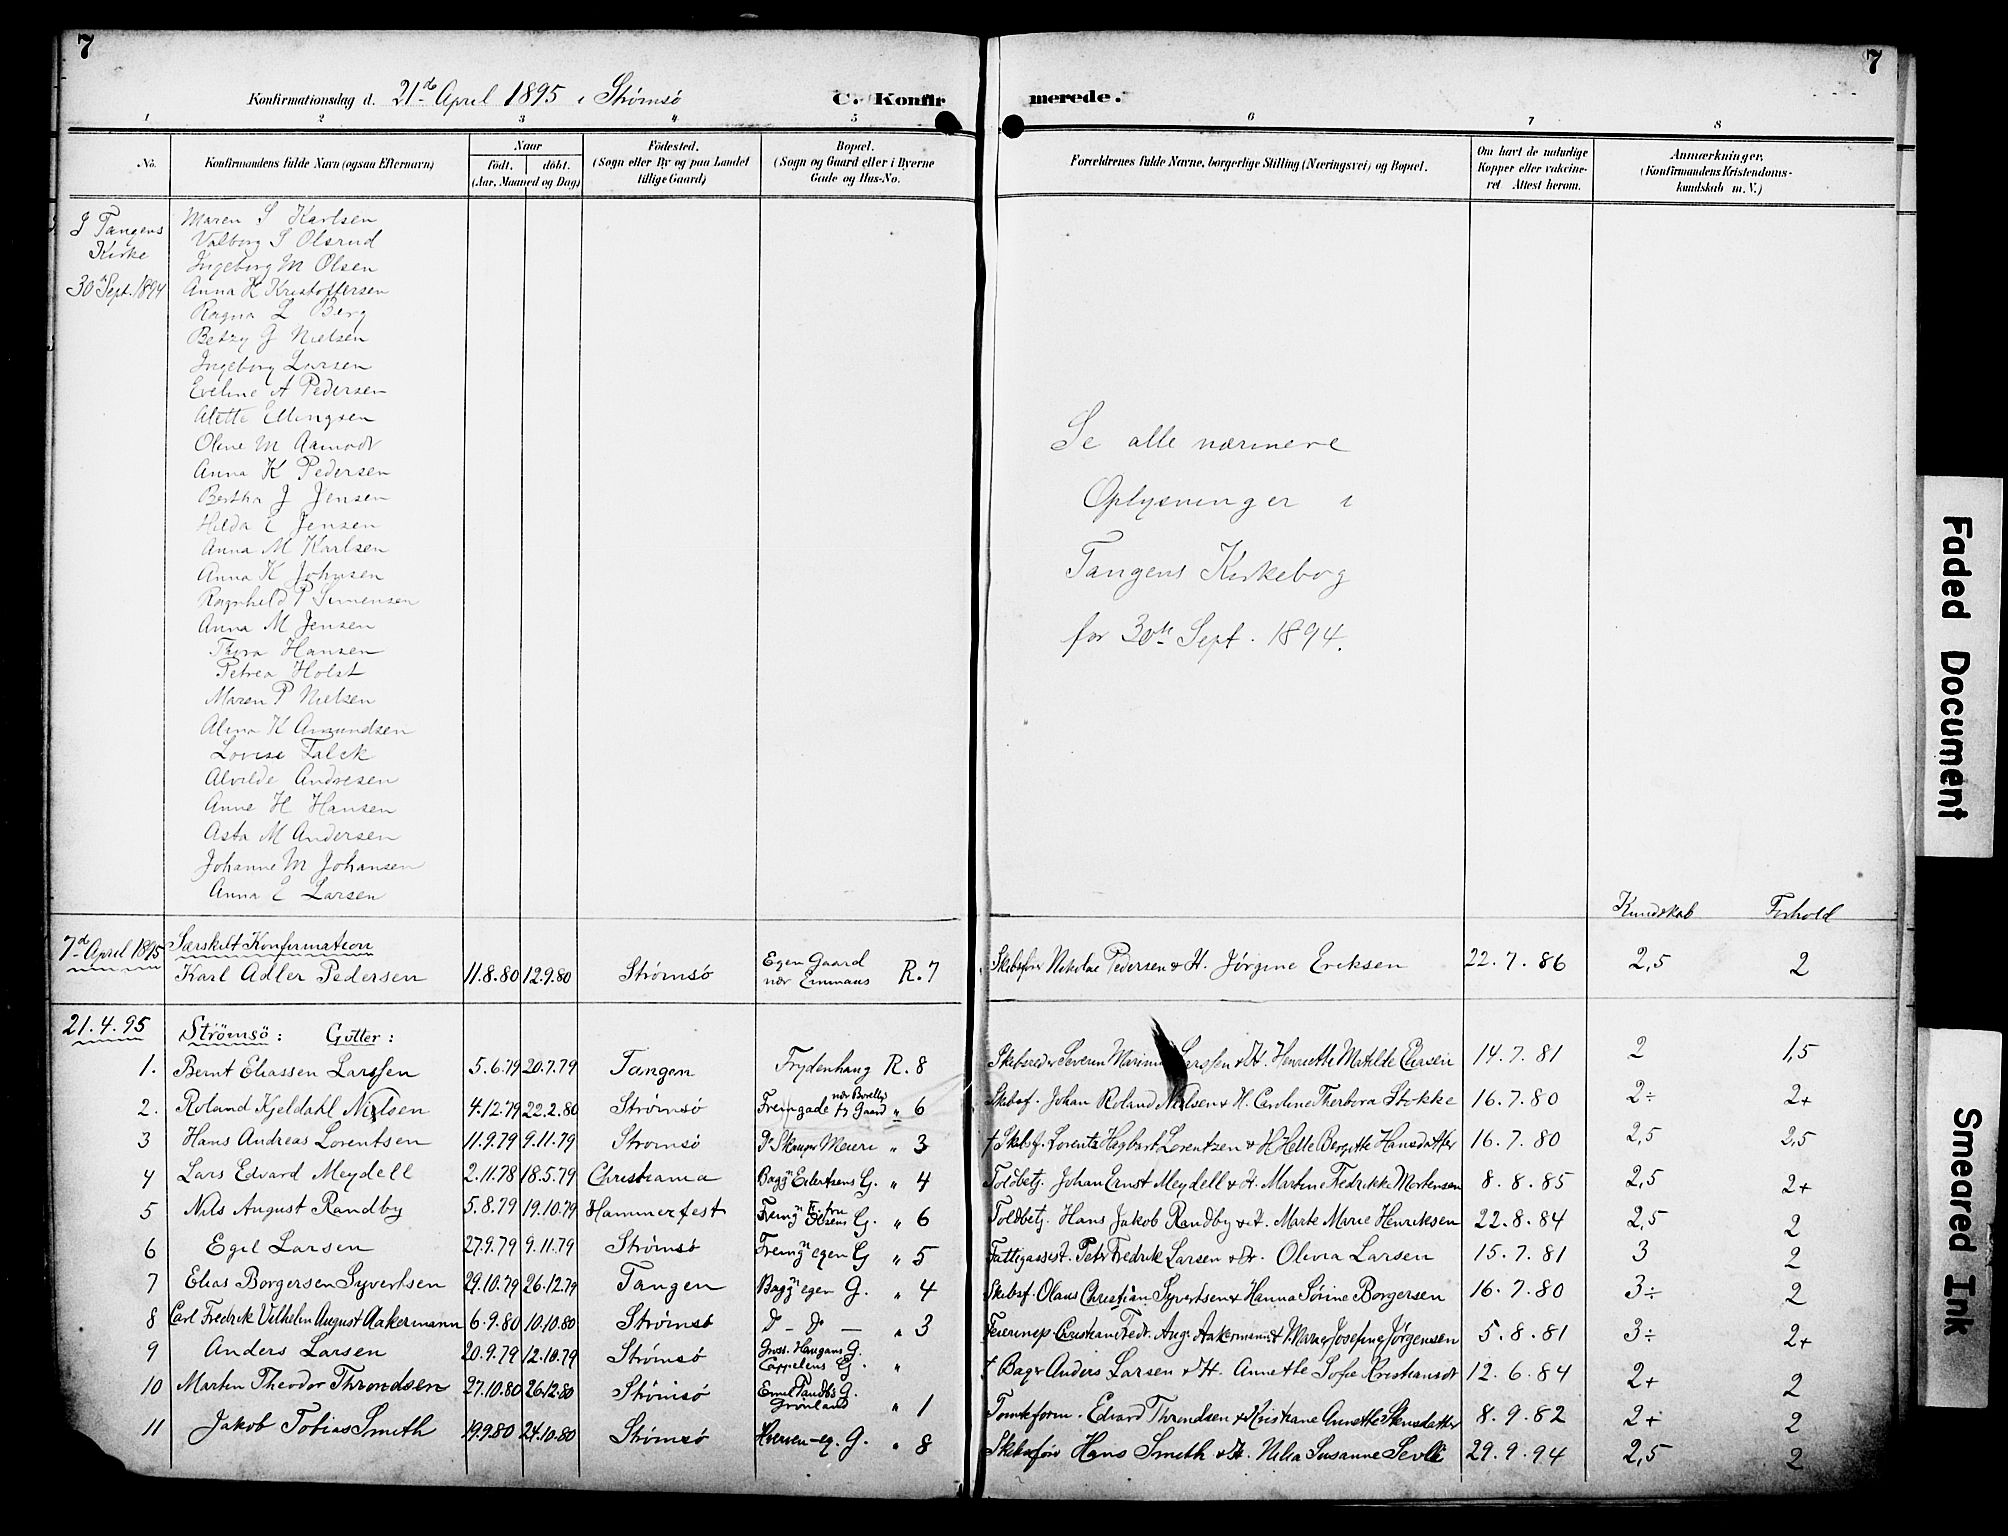 7
7
Konfirmationsdag d. 21de April 1895 i Strømsø
C. Konfirmerede.
1 2 3 4 5 6 7 8
No.
Konfirmandens fulde Navn (ogsaa Efternavn)
Naar
født. døbt.
(Aar, Maaned og Dag)
Fødested.
(Sogn eller By og paa Landet
tillige Gaard)
Bopæl.
(Sogn og Gaard eller i Byerne
Gade og Hus-No.
Forældrenes fulde Navne, borgerlige Stilling (Næringsvei) og Bopæl.
Om havt de naturlige
Kopper eller vakcine-
ret Attest herom.
Anmærkninger.
(Konfirmandens Kristendoms-
kundskab m. V.)
I Tangens
Kirke
30te Sept. 1894
Maren S Karlsen
Valborg S Olsrud
Ingeborg M Olsen
Anna K Kristoffersen
Ragna L Berg
Betzy G Nielsen
Ingeborg Larsen
Eveline A Pedersen
Alette Ellingsen
Oline M Aamodt
Anna K Pedersen
Bertha J Jensen
Hilda E Jensen
Anna M Karlsen
Anna K Johnsen
Ragnhild P Simensen
Anna M Jensen
Thora Hansen
Petrea Holst
Maren P Nielsen
Alma K Amundsen
Lovise Falck
Alvilde Andresen
Anne H Hansen
Asta M Andersen
Johanne M Johansen
Anna E Larsen
Se alle nærmere
Oplysninger i
Tangens Kirkebog
for 30te Sept. 1894.
Kundskab Forhold
7de April 1895 Særskilt Konfirmation
Karl Adler Pedersen 11.8.80 12.9.80 Strømsø Egen Gaard nær Emmaus R. 7 Skibsfør Nikolai Pedersen & H. Jørgine Eriksen 22.7.86 2,5 2
21.4.95 Strømsø: Gutter:
1. Bernt Eliassen Larssen 5.6.79 20.7.79 Tangen Frydenhaug R. 8 Skibsreder Severin Larssen & H. Henriette Matilde 14.7.81 2 1,5
2. Roland Kjeldahl Nielsen 4.12.79 22.2.80 Strømsø Fremgade Gaard " 6 Skibsf. Johan Roland Nielsen & H. Caroline Therbora Stokke 16.7.80 2÷ 2+
3 Hans Andreas Lorentsen 11.9.79 9.11.79 Strømsø Meieri " 3 † Skibsf. Lorents Lorentzen & H Helle Bergitte Hansdatter 16.7.80 2,5 2,5
4 Lars Edvard Meydell 2.11.78 18.5.79 Christiania Bagg. Eilertsens G. " 4 Toldbetj. Johan Ernst Meydell & H. Martine Fredrikke Mortensen 8.8.85 2,5 2+
5 Nils August Randby 5.8.79 19.10.79 Hammerfest Fremg. Olsens G. " 6 Toldbetj. Hans Jakob Randby & H. Marte Marie Henriksen 22.8.84 2,5 2
6 Egil Larsen 27.9.79 9.11.79 Strømsø Fremgn egen G " 5 Fattigassist. Peter Fredrik Larsen & H. Olivia Larsen 15.7.81 3 2
7 Elias Borgersen Syvertsen 29.10.79 26.12.79 Tangen Baggn egen G. " 4 Skibsf. Olaus Christian Syvertsen & Hanna Sørine Borgersen 16.7.80 3÷ 2
8 Carl Fredrik Vilhelm August Aakermann 6.9.80 10.10.80 Strømsø Do - Do - " 3 Christian Fredr. Aug. Aakermann & H. Marie Josefine Jørgensen 5.8.81 3÷ 2+
9 Anders Larsen 20.9.79 12.10.79 Strømsø Gross. Haugans G. Cappelens G. " † Bager Anders Larsen & H. Annethe Sofie Kristiansdt 12.6.84 2+ 2
10 Martin Theodor Throndsen 27.10.80 26.12.80 Strømsø Emil Tandbs G. Grønland " 1 Tomteform. Edvard Throndsen & Kristiane Annethe Stensdatter 8.9.82 2+ 2
11 Jakob Tobias Smith 19.9.80 24.10.80 Strømsø G. " 8 Skibsfør Hans Smith & H. Nilla Susanne Sevle 29.9.94 2,5 2
Faded Document
Smeared Ink